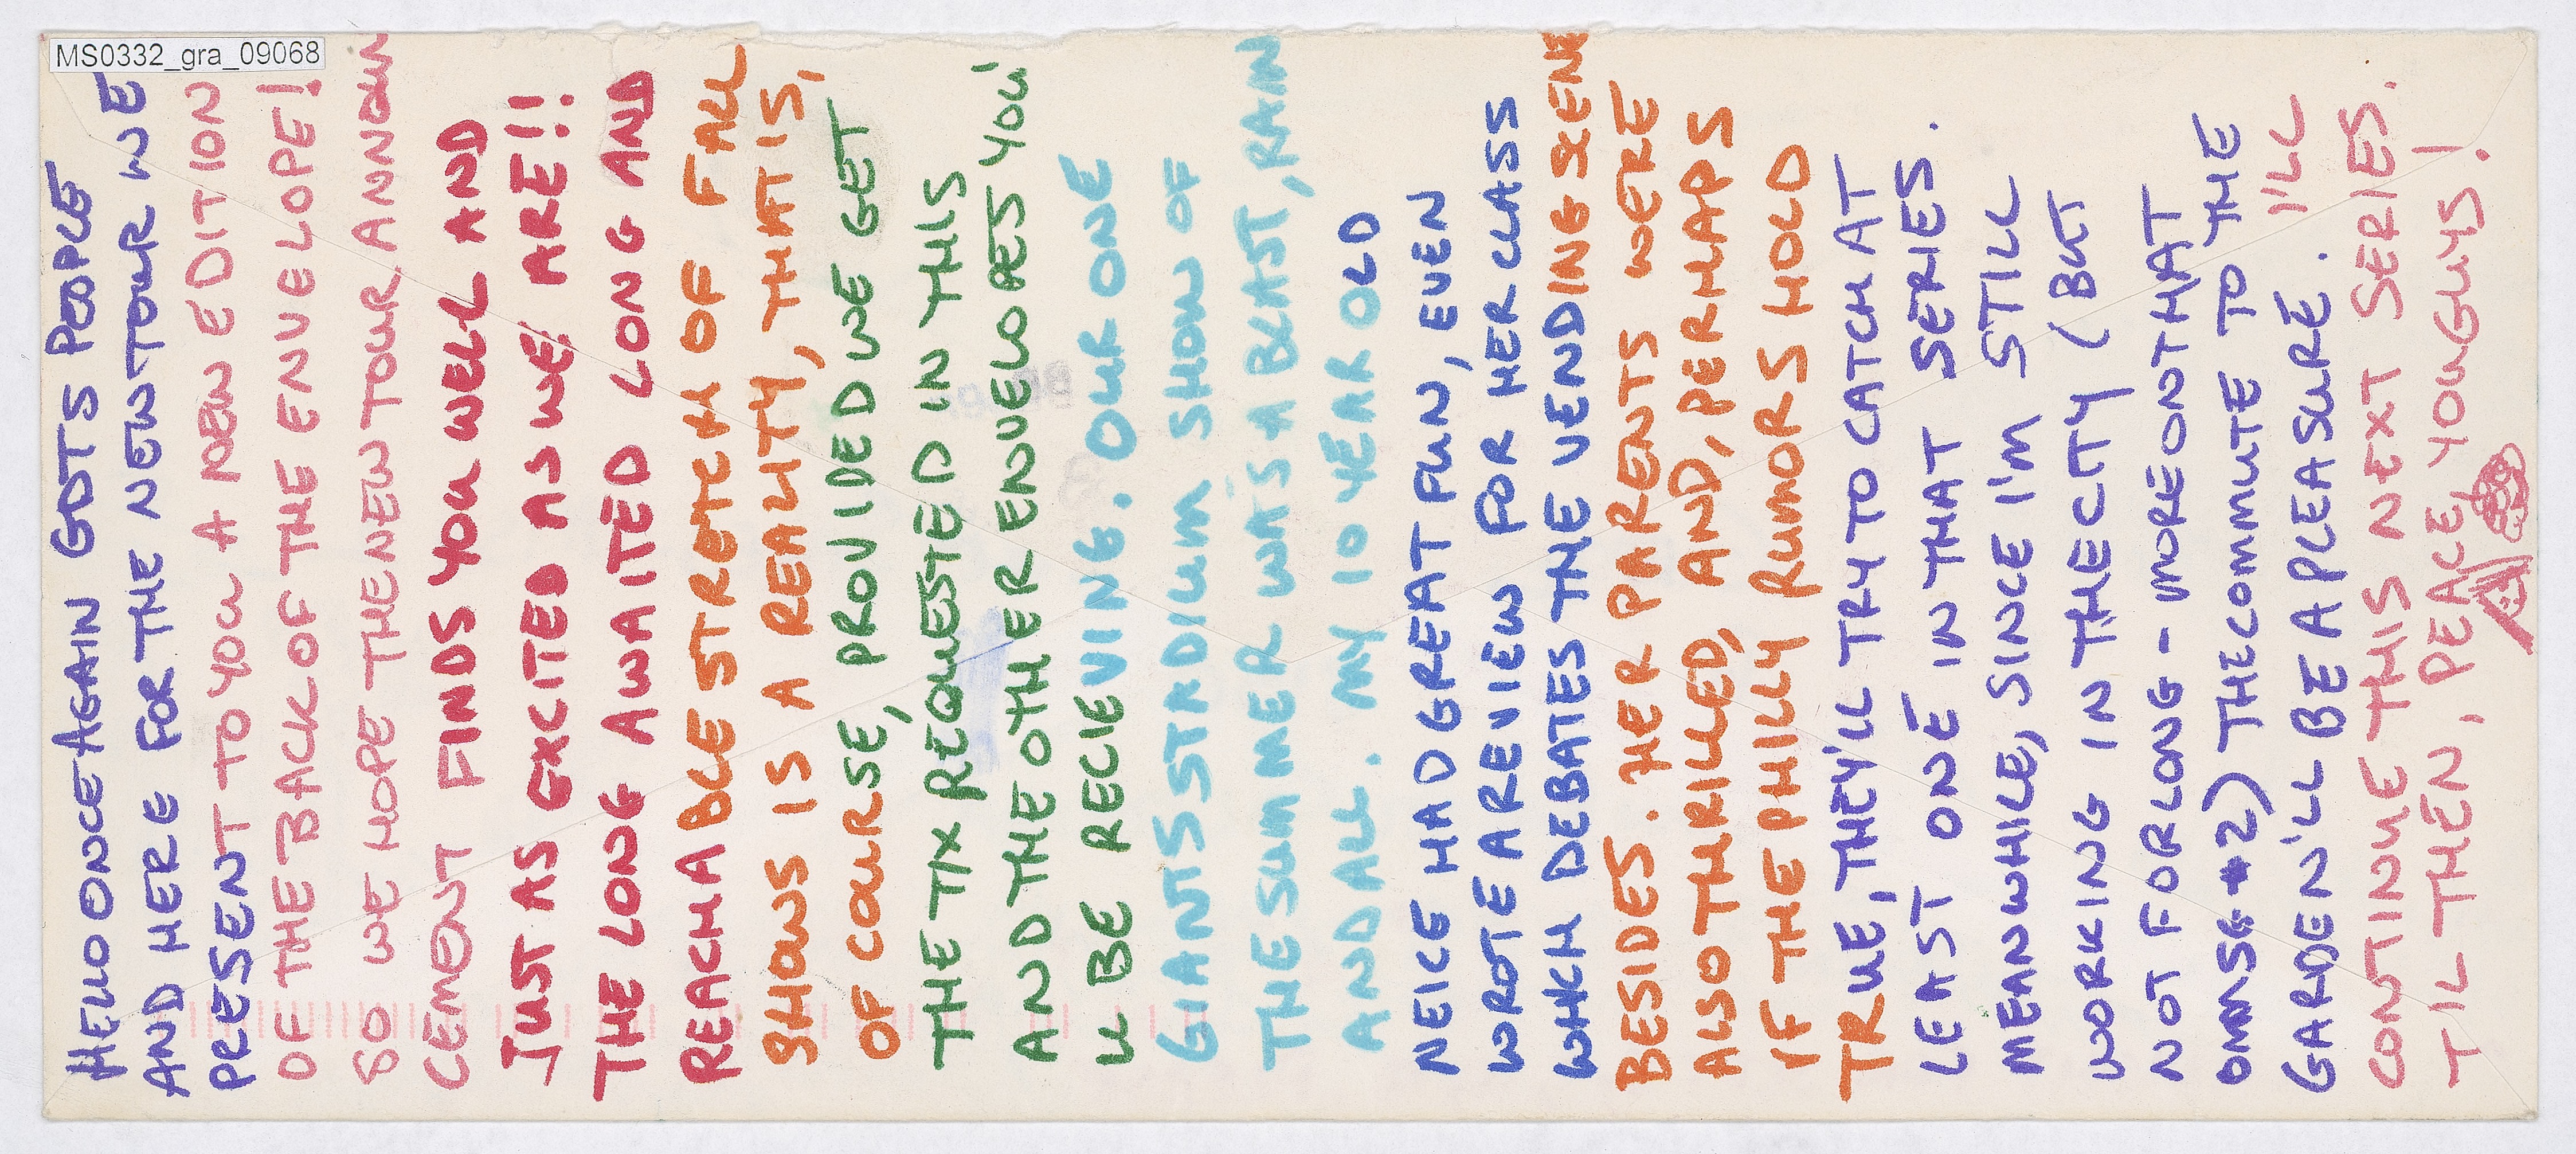 MS0332_gra_09068
HELLO ONCE AGAIN GDTS PEOPLE
AND HERE FOR THE NEW TOUR WE
PRESENT TO YOU A NEW EDITION
OF THE BACK OF THE ENVELOPE!
SO WE HOPE THE NEW TOUR ANNOUN
CEMENT FINDS YOU WELL AND
JUST AS EXCITED AS WE ARE!!
THE LONG AWAITED LONG AND
REACHABLE STRETCH OF FALL
SHOWS IS A REALITY, THAT IS,
OF COURSE, PROVIDED WE GET
THE TIX REQUESTED IN THIS
AND THE OTHER ENVELOPES YOU'
LL BE RECIEVING. OUR ONE
GIANTS STADIUM SHOW OF
THE SUMMER WAS A BLAST, RAIN
AND ALL. MY 10 YEAR OLD
NEICE HAD GREAT FUN, EVEN
WROTE A REVIEW FOR HER CLASS
WHICH DEBATES THE VENDING SCENE
BESIDES. HER PARENTS WERE
ALSO THRILLED, AND, PERHAPS
IF THE PHILLY RUMORS HOLD
TRUE, THEY'LL TRY TO CATCH AT
LEAST ONE IN THAT SERIES.
MEANWHILE, SINCE I'M STILL
WORKING IN THE CITY (BUT
NOT FOR LONG - MORE ON THAT
ON MSG #2) THE COMMUTE TO THE
GARDEN'LL BE A PLEASURE. I'LL
CONTINUE THIS NEXT SERIES.
TIL THEN, PEACE YOU GUYS!